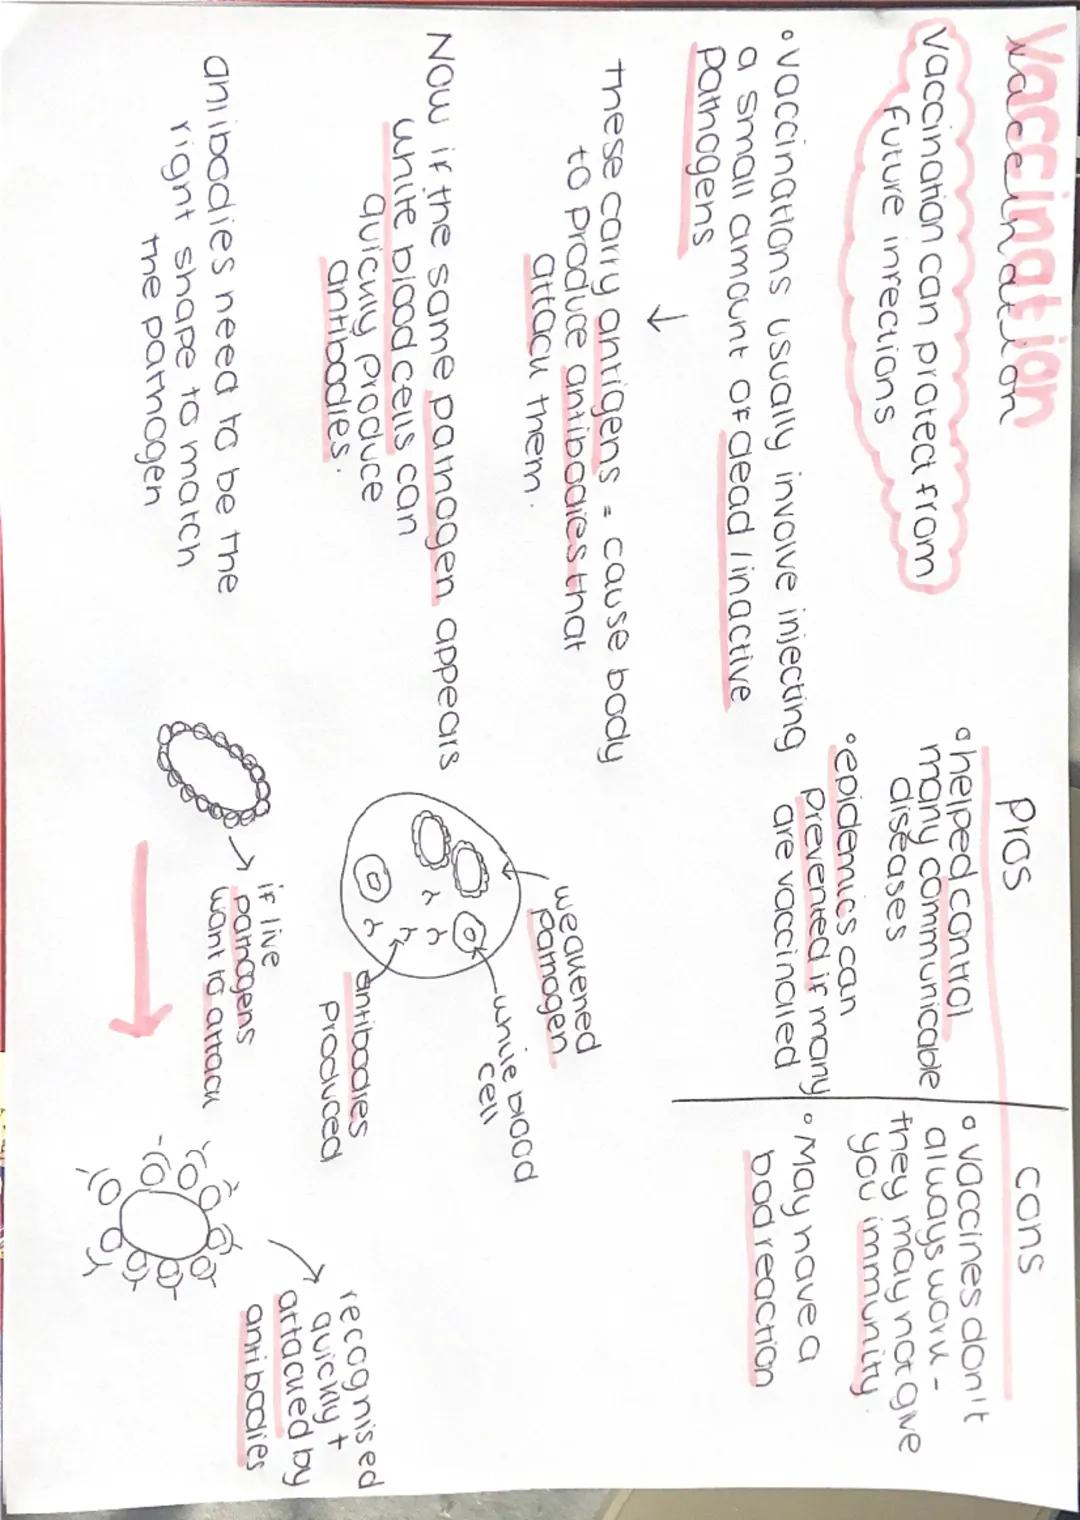 Vaccination
Vaccination
Vaccination can protect from
future infections
• Vaccinations usually involve injecting
a small amount of dead / inactive
pathogens
↓
These carry antigens = cause body
to produce antibodies that
attack them.
Now if the same pathogen appears
white blood cells can
quickly produce
antibodies.
antibodies need to be the
right shape to match
the pathogen
Pros
• helped control
many communicable
diseases
• epidemics can
prevented if many
are vaccinated
cons
• vaccines don't
always work -
they may not give
you immunity.
• May have a
bad reaction
weakened
pathogen
white blood
cell
antibodies
produced
if live
pathogens
want to attack
recognised
quickly +
attacked by
antibodies